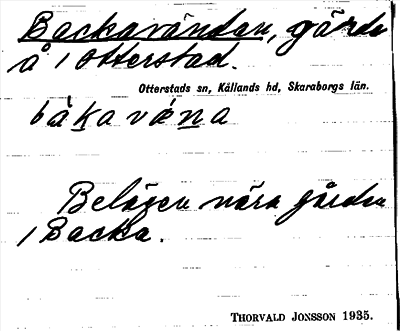 Backavändan, gärde
å 1 Otterstad.
Otterstads sn, Kållands hd, Skaraborgs län.
bàkavǽna
Belägen nära gården
1 Backa.
THORVALD JONSSON 1935.